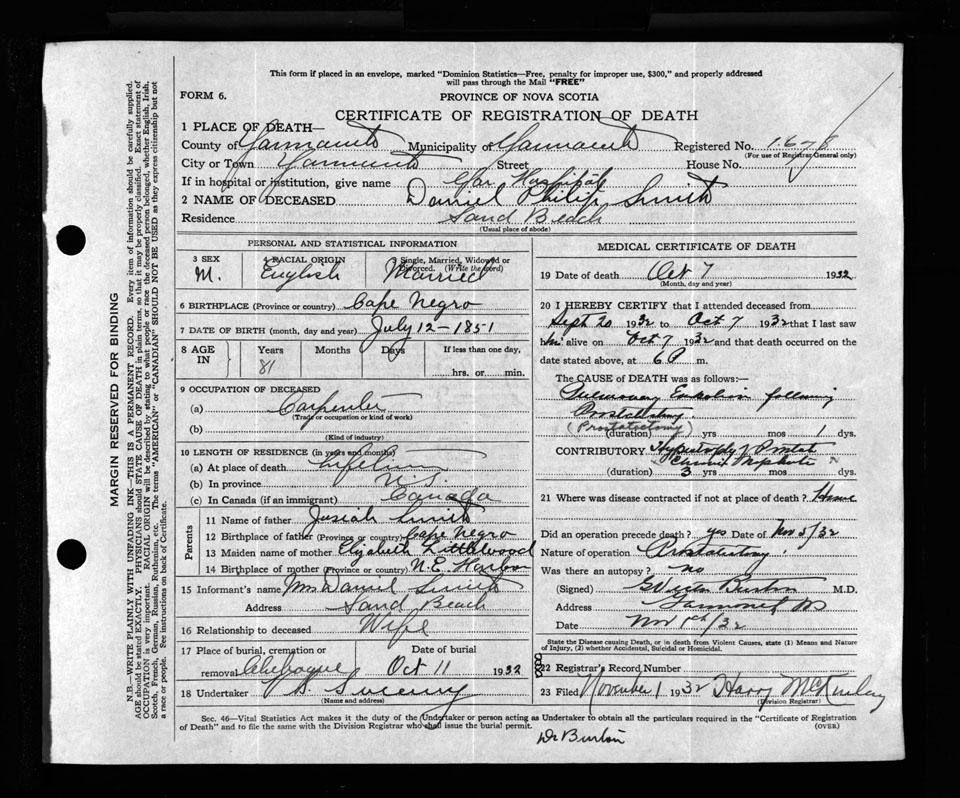 This form if placed in an envelope, marked "Dominion Statistics—Free, penalty for improper use, $300," and properly addressed
will pass through the Mail "FREE"
FORM 6.
PROVINCE OF NOVA SCOTIA
CERTIFICATE OF REGISTRATION OF DEATH
1 PLACE OF DEATH—
County of Yarmouth Municipality of Yarmouth Registered No. 1678
(For use of Registrar General only)
City or Town Yarmouth Street House No.
If in hospital or institution, give name Yar Hospital
2 NAME OF DECEASED Daniel Philip Smith
Residence Sand Beach
(Usual place of abode)
PERSONAL AND STATISTICAL INFORMATION
3 SEX M.
4 RACIAL ORIGIN English
5 Single, Married, Widowed or Divorced. (Write the word) Married
6 BIRTHPLACE (Province or country) Cape Negro
7 DATE OF BIRTH (month, day and year) July 12-1851
8 AGE IN Years 81 Months Days If less than one day,
hrs. or min.
9 OCCUPATION OF DECEASED
(a) Carpenter
(Trade or occupation or kind of work)
(b)
(Kind of industry)
10 LENGTH OF RESIDENCE (in years and months)
(a) At place of death lifetime
(b) In province N.S.
(c) In Canada (if an immigrant) Canada
Parents
11 Name of father Josiah Smith
12 Birthplace of father (Province or country) Cape Negro
13 Maiden name of mother Elizabeth Littlewood
14 Birthplace of mother (Province or country) N.E. Harbor
15 Informant's name Mrs Daniel Smith
Address Sand Beach
16 Relationship to deceased Wife
17 Place of burial, cremation or Date of burial
removal Chebogue Oct 11 1932
18 Undertaker Sweeny
(Name and address)
MEDICAL CERTIFICATE OF DEATH
19 Date of death Oct 7 1932
(Month, day and year)
20 I HEREBY CERTIFY that I attended deceased from
Sept 20 1932 to Oct 7 1932 that I last saw
him alive on Oct 7 1932 and that death occurred on the
date stated above, at 6 P m.
The CAUSE OF DEATH was as follows:—
Pulmonary Embolism following
Prostatectomy
(Prostatectomy)
(duration) yrs mos 1 dys.
CONTRIBUTORY Hypertrophy of Prostate
Chronic Nephritis
(duration) 3 yrs mos dys.
21 Where was disease contracted if not at place of death? Home
Did an operation precede death? yes Date of /32
Nature of operation Prostatectomy
Was there an autopsy? no
(Signed) Burton M.D.
Address Yarmouth NS
Date Nov 1st/32
State the Disease causing Death, or in death from Violent Causes, state (1) Means and Nature
of Injury, (2) whether Accidental, Suicidal or Homicidal.
22 Registrar's Record Number
23 Filed November 1 1932 Harry McKinlay
(Division Registrar)
Sec. 46—Vital Statistics Act makes it the duty of the Undertaker or person acting as Undertaker to obtain all the particulars required in the "Certificate of Registration
of Death" and to file the same with the Division Registrar who shall issue the burial permit. (OVER)
Dr Burton
MARGIN RESERVED FOR BINDING
N.B.—WRITE PLAINLY WITH UNFADING INK—THIS IS A PERMANENT RECORD. Every item of information should be carefully supplied.
AGE should be stated EXACTLY. PHYSICIANS should STATE CAUSE OF DEATH in plain terms, so that it may be properly classified. Exact statement of
OCCUPATION is very important. RACIAL ORIGIN will be described by stating to what people or race the deceased person belonged, whether English, Irish,
Scotch, French, German, Russian, Ruthenian, etc. The terms "AMERICAN" or "CANADIAN" SHOULD NOT BE USED as they express citizenship but not
a race or people. See instructions on back of Certificate.